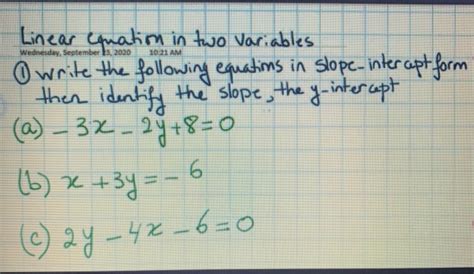 Linear Equation in two Variables
Wednesday, September 23, 2020 10:21 AM
① write the following equations in slope-intercept form
then identify the slope, the y-intercept
(a) -3x - 2y + 8 = 0
(b) x + 3y = - 6
(c) 2y - 4x - 6 = 0